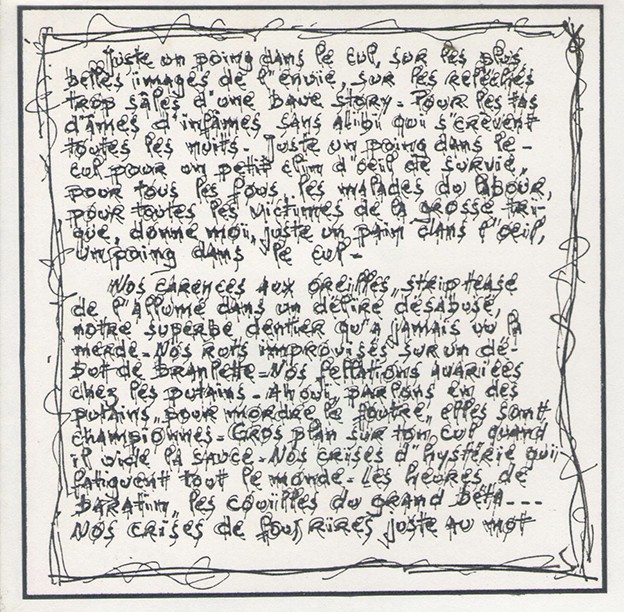 Juste un poing dans le cul, sur les plus
belles images de l'envie, sur les reflechés
trop sâles d'une bave story - Pour les tas
d'âmes d'infâmes sans alibi qui s'crèvent
toutes les nuits - Juste un poing dans le -
cul pour un petit clim d'œil de survie,
pour tous les fous les malades du labour,
pour toutes les victimes de la grosse tri-
que, donne moi, juste un pain dans l'œil,
un poing dans le cul -
Nos carences aux oreilles, striptease
de l'allumé dans un délire désabusé,
notre superbe dentier qu'a jamais vu la
merde - Nos rots improvisés sur un dé-
but de branlette - Nos fellations avariées
chez les putains - Ah oui, parlons en des
putains, pour mordre le foutre, elles sont
championnes - Gros plan sur ton cul quand
il vide la sauce - Nos crises d'hystérie qui
fatiguent tout le monde - Les heures de
baratin, les couilles du grand Béta ---
Nos crises de fous rires juste au mot